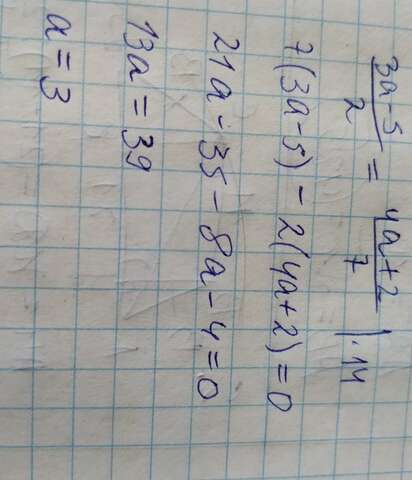 (3a-5)/2 = (4a+2)/7 |·14
7(3a-5) - 2(4a+2) = 0
21a - 35 - 8a - 4 = 0
13a = 39
a = 3